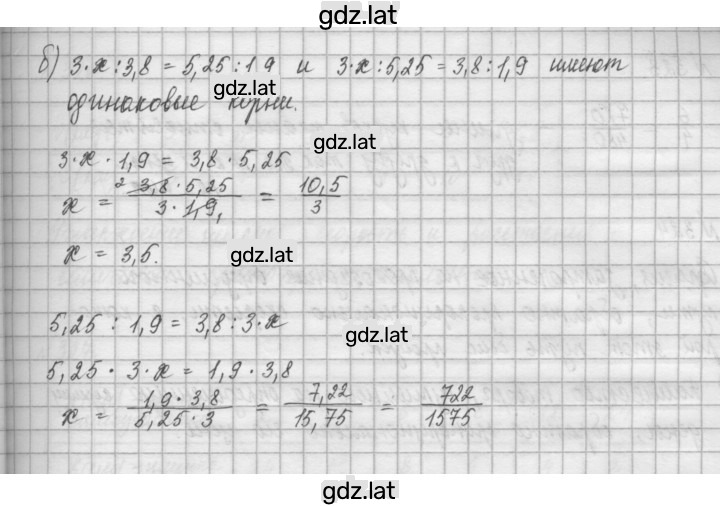 gdz.lat
б) 3·x:3,8 = 5,25:1 9 и 3·x:5,25 = 3,8:1,9 имеют
gdz.lat
одинаковые корни.
gdz.lat
3·x·1,9 = 3,8·5,25
x = 2 3,8·5,25 / 3·1,9 1 = 10,5 / 3
x = 3,5.
gdz.lat
5,25 : 1,9 = 3,8 : 3·x
gdz.lat
5,25·3·x = 1,9·3,8
x = 1,9·3,8 / 5,25·3 = 7,22 / 15,75 = 722 / 1575
gdz.lat